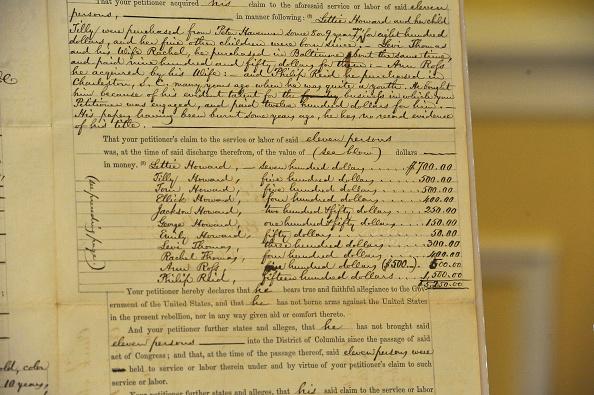 That your petitioner acquired his claim to the aforesaid service or labor of said eleven
persons, in manner following: (5) Lettie Howard and her child
Tilly were purchased from some 8 or 9 years ago, for eight hundred
dollars, and her five other children were born since; - Levi Thomas
and his Wife Rachel, he purchased in Baltimore about the same time,
and paid nine hundred and fifty dollars for them: - Ann Ross
he acquired by his Wife: - and Philip Reid he purchased in
Charleston, S. C. many years ago when he was quite a youth. He bought
him because of his evident talent for the business in which your
Petitioner was engaged, and paid twelve hundred dollars for him. -
His papers having been burnt some years ago, he has no record evidence
of his title.
That your petitioner's claim to the service or labor of said eleven persons
was, at the time of said discharge therefrom, of the value of (see below) dollars
in money. (6) Lettie Howard, - seven hundred dollars ..... $700.00
Tilly Howard, five hundred dollars ..... 500.00
Tom Howard, five hundred dollars ..... 500.00
Ellick Howard, four hundred dollars ..... 400.00
Jackson Howard, two hundred & fifty dollars .... 250.00
George Howard, one hundred & fifty dollars .... 150.00
Emily Howard, fifty dollars ..... 50.00
Levi Thomas, three hundred dollars ..... 300.00
Rachel Thomas, four hundred dollars ..... 400.00
Ann Ross, five hundred dollars ($500.-) .. 500.00
Philip Reid, fifteen hundred dollars ..... 1,500.00
$5,250.00
Your petitioner hereby declares that he bears true and faithful allegiance to the Gov-
ernment of the United States, and that he has not borne arms against the United States
in the present rebellion, nor in any way given aid or comfort thereto.
And your petitioner further states and alleges, that he has not brought said
eleven persons into the District of Columbia since the passage of said
act of Congress; and that, at the time of the passage thereof, said eleven persons were
held to service or labor therein under and by virtue of your petitioner's claim to such
service or labor.
Your petitioner further states and alleges, that his said claim to the service or labor
old, color
10 years,